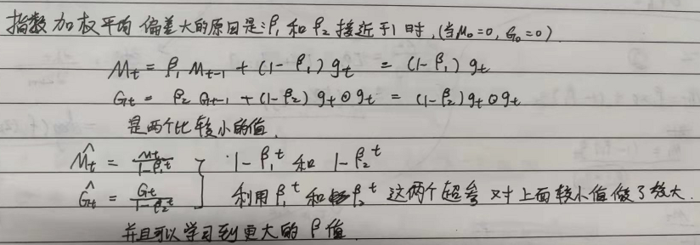 指数加权平均 偏差大的原因是：β₁ 和 β₂ 接近于1时，(当M₀=0, G₀=0)
Mt = β₁ Mt-1 + (1-β₁) gt = (1-β₁) gt
Gt = β₂ Gt-1 + (1-β₂) gt⊙gt = (1-β₂) gt⊙gt
是两个比较小的值.
M̂t = Mt/(1-β₁ᵗ) } 1-β₁ᵗ 和 1-β₂ᵗ
Ĝt = Gt/(1-β₂ᵗ) 利用 β₁ᵗ 和 β₂ᵗ 这两个超参 对上面较小值做了放大.
并且可以学习到更大的 β值